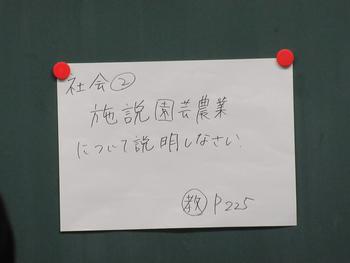 社会②
施説園芸農業
について説明しなさい.
㊗教 P225